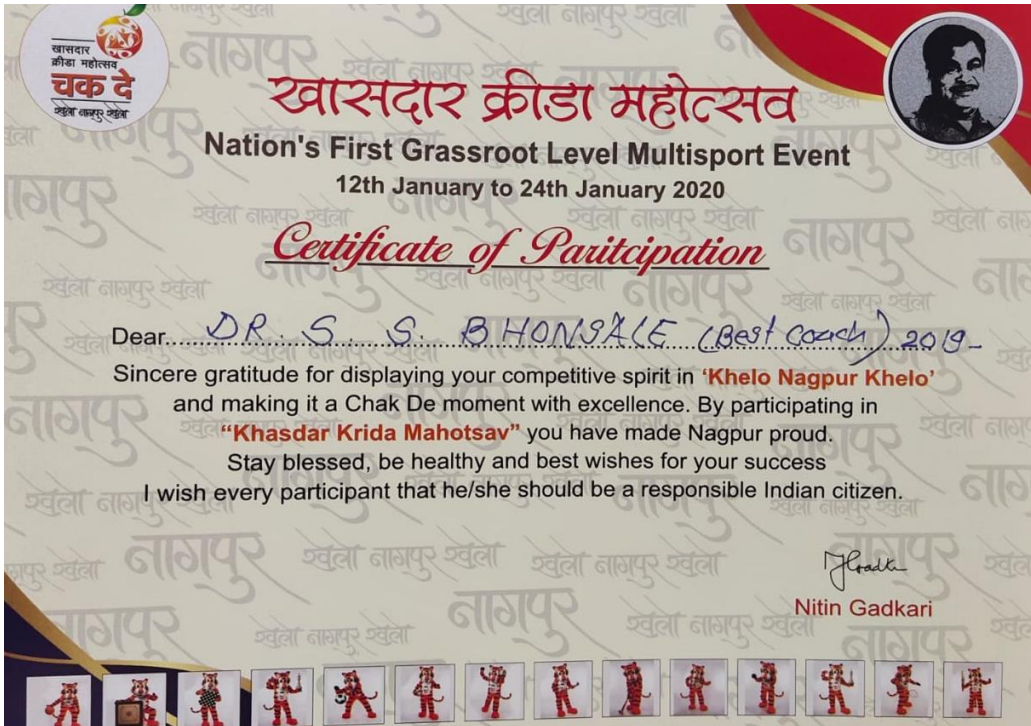 खासदार
क्रीडा महोत्सव
चक दे
खेला नागपुर खेला
खासदार क्रीडा महोत्सव
Nation's First Grassroot Level Multisport Event
12th January to 24th January 2020
Certificate of Paritcipation
Dear.....DR. S. S. BHONSALE (Best Coach) 2019-
Sincere gratitude for displaying your competitive spirit in 'Khelo Nagpur Khelo'
and making it a Chak De moment with excellence. By participating in
“Khasdar Krida Mahotsav” you have made Nagpur proud.
Stay blessed, be healthy and best wishes for your success
I wish every participant that he/she should be a responsible Indian citizen.
Nitin Gadkari